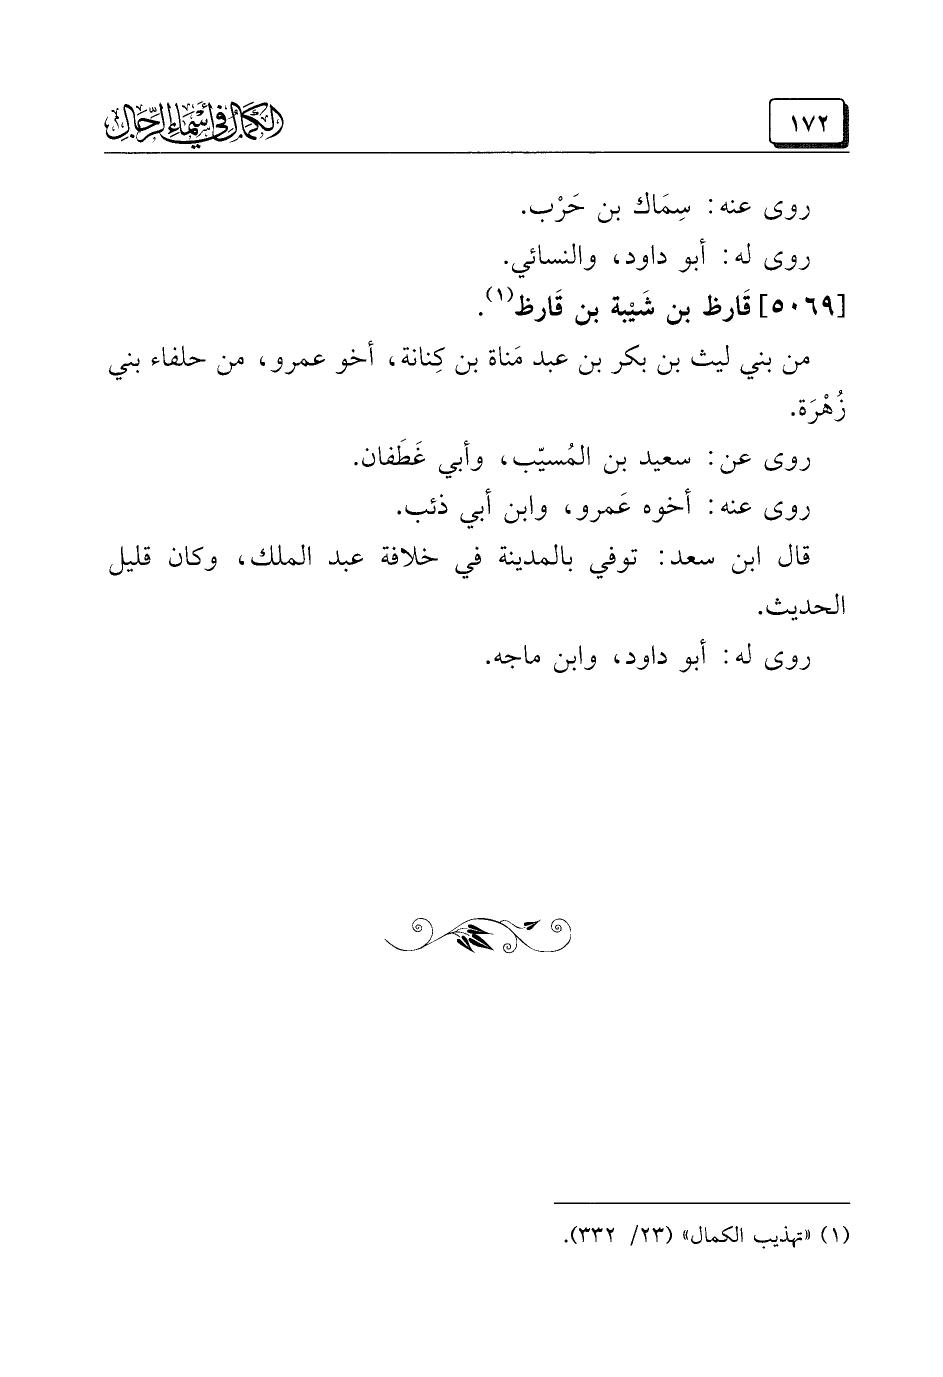 ١٧٢
الكمال في أسماء الرجال
روى عنه: سِمَاك بن حَرْب.
روى له: أبو داود، والنسائي.
[٥٠٦٩] قَارظ بن شَيْبة بن قَارظ(١).
من بني ليث بن بكر بن عبد مَناة بن كِنانة، أخو عمرو، من حلفاء بني
زُهْرَة.
روى عن: سعيد بن المُسيّب، وأبي غَطَفان.
روى عنه: أخوه عَمرو، وابن أبي ذئب.
قال ابن سعد: توفي بالمدينة في خلافة عبد الملك، وكان قليل
الحديث.
روى له: أبو داود، وابن ماجه.
(١) «تهذيب الكمال» (٢٣/ ٣٣٢).